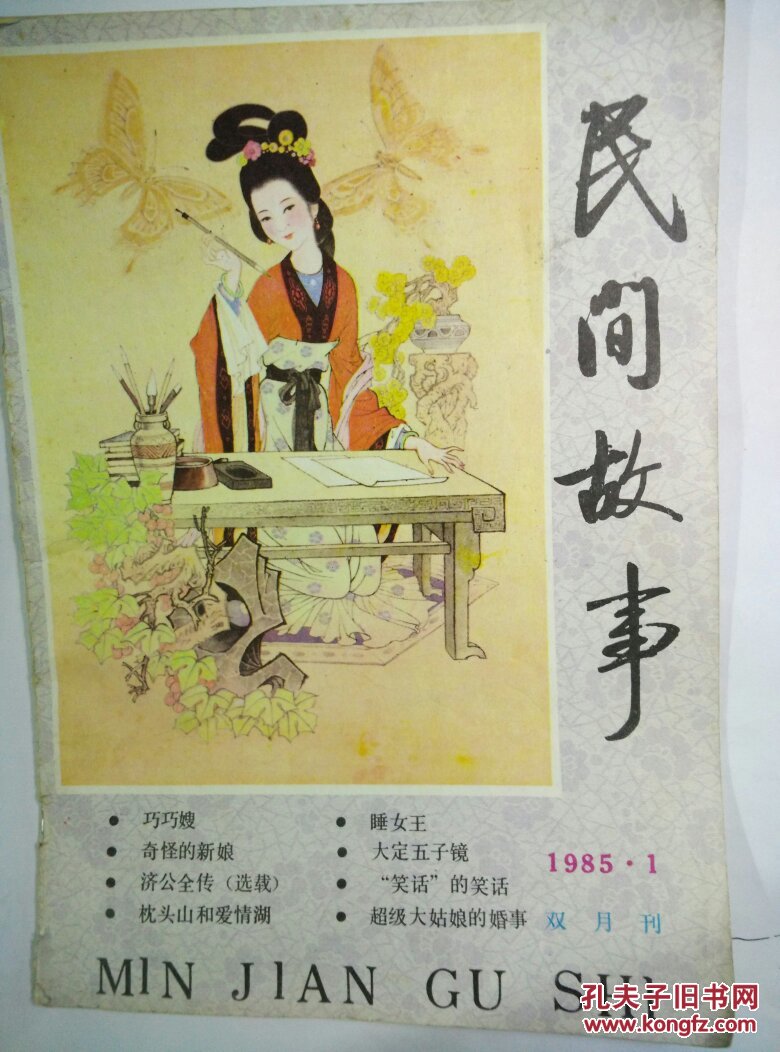 民间故事
巧巧嫂
奇怪的新娘
济公全传（选载）
枕头山和爱情湖
睡女王
大定五子镜
“笑话”的笑话
超级大姑娘的婚事
1985·1
双月刊
MIN JIAN GU SHI
孔夫子旧书网
www.kongfz.com